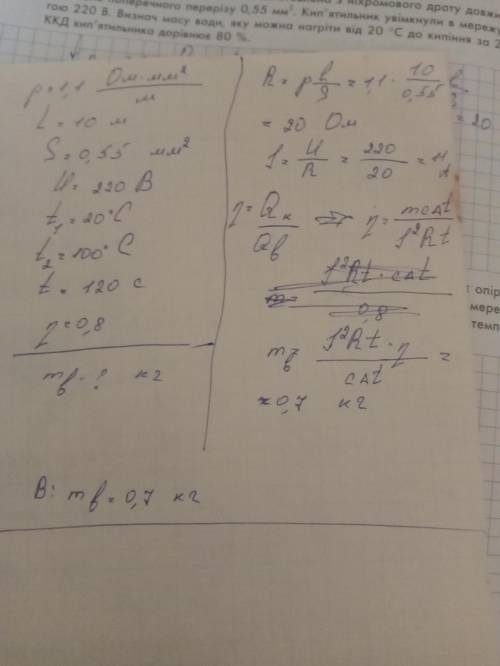 поперечного перерізу 0,55 мм². Кип'ятильник увімкнули в мережу
гою 220 В. Визнач масу води, яку можна нагріти від 20 °C до кипіння за 2
ККД кип'ятильника дорівнює 80 %.
ρ=1,1 Ом·мм²/м
L = 10 м
S = 0,55 мм²
U = 220 В
t₁ = 20°C
t₂ = 100°C
t = 120 с
η = 0,8
mв - ? кг
R = ρ l/S = 1,1 · 10/0,55
= 20 Ом
I = U/R = 220/20 = 11 А
η = Qк/Qв ⇒ η = mcΔt/I²Rt
I²Rt · cΔt
m =
0,8
mв = I²Rt · η/cΔt =
≈ 0,7 кг
В: mв = 0,7 кг
= 20
опір
мере
темп